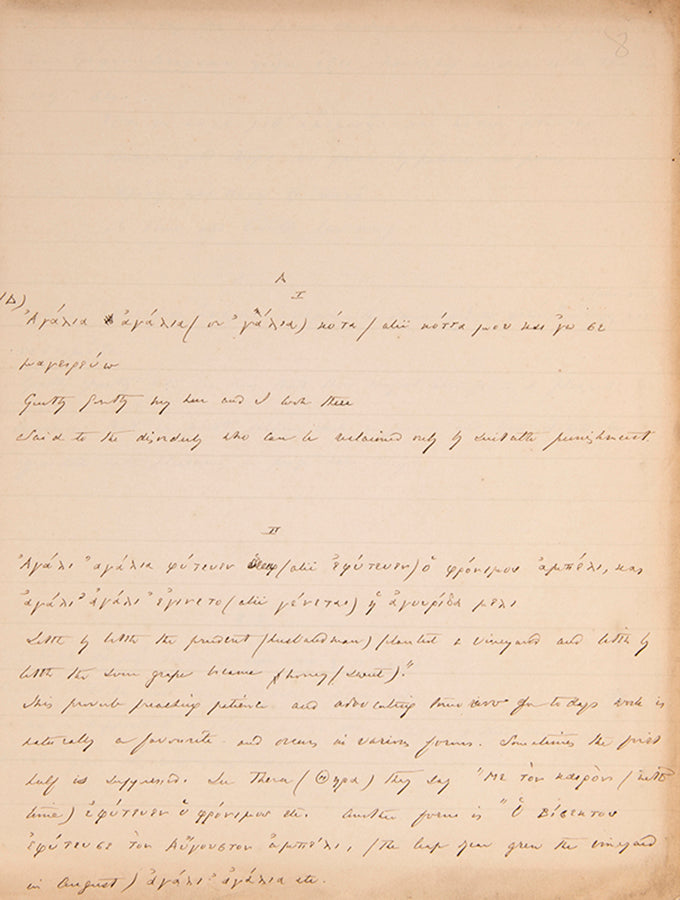 8
A
I
Ἀγάλια ἀγάλια (or ἀγάλια) κότα / alii κόττα μου και ἐγω σε
μαγειρεύω
Gently gently my hen and I cook thee
Said to the disorderly who can be reclaimed only by suitable punishment.
II
Ἀγάλι ἀγάλια φύτευεν (alii ἐφύτευεν) ὁ φρόνιμος ἀμπέλι, και
ἀγάλι ἀγάλι ἐγινετο (alii γένεται) ἡ ἀγουρίδα μελι
Little by little the prudent (husbandman) planted a vineyard and little by
little the sour grape became honey (sweet)."
This proverb preaching patience and advocating for todays work is
naturally a favourite and occurs in various forms. Sometimes the first
half is suppressed. In Thera (Θηρα) they say "Με τὸν καιρὸν (with
time) ἐφύτευεν ὁ φρόνιμος etc. Another form is "Ὁ Βίσεκτος
ἐφύτευσε τὸν Αὔγουστον ἀμπέλι, (the leap year grew the vineyard
in August) ἀγάλι ἀγάλια etc.